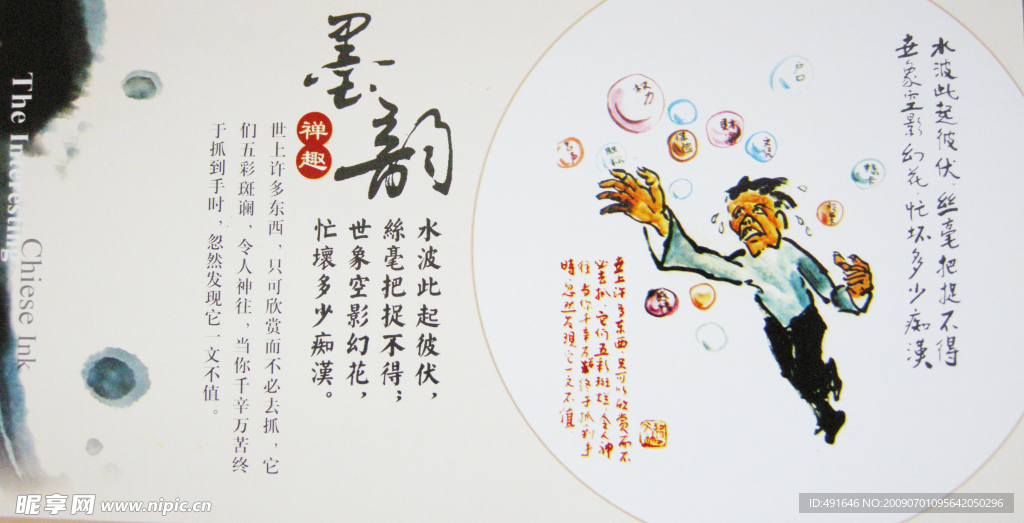 The Interesting
Chiese Ink
墨韵
禅趣
水波此起彼伏，
絲毫把捉不得；
世象空影幻花，
忙壞多少痴漢。
世上许多东西，只可欣赏而不必去抓，它
们五彩斑谰，令人神往，当你千辛万苦终
于抓到手时，忽然发现它一文不值。
水波此起彼伏，丝毫把捉不得
世象空影幻花忙坏多少痴漢
努力
世上许多东西，只可以欣赏而不
必去抓，它们五彩斑斓，令人神
往，当你千辛万苦终于抓到手
時，忽然发現它一文不值
昵享网 www.nipic.cn
ID:491646 NO:20090701095642050296